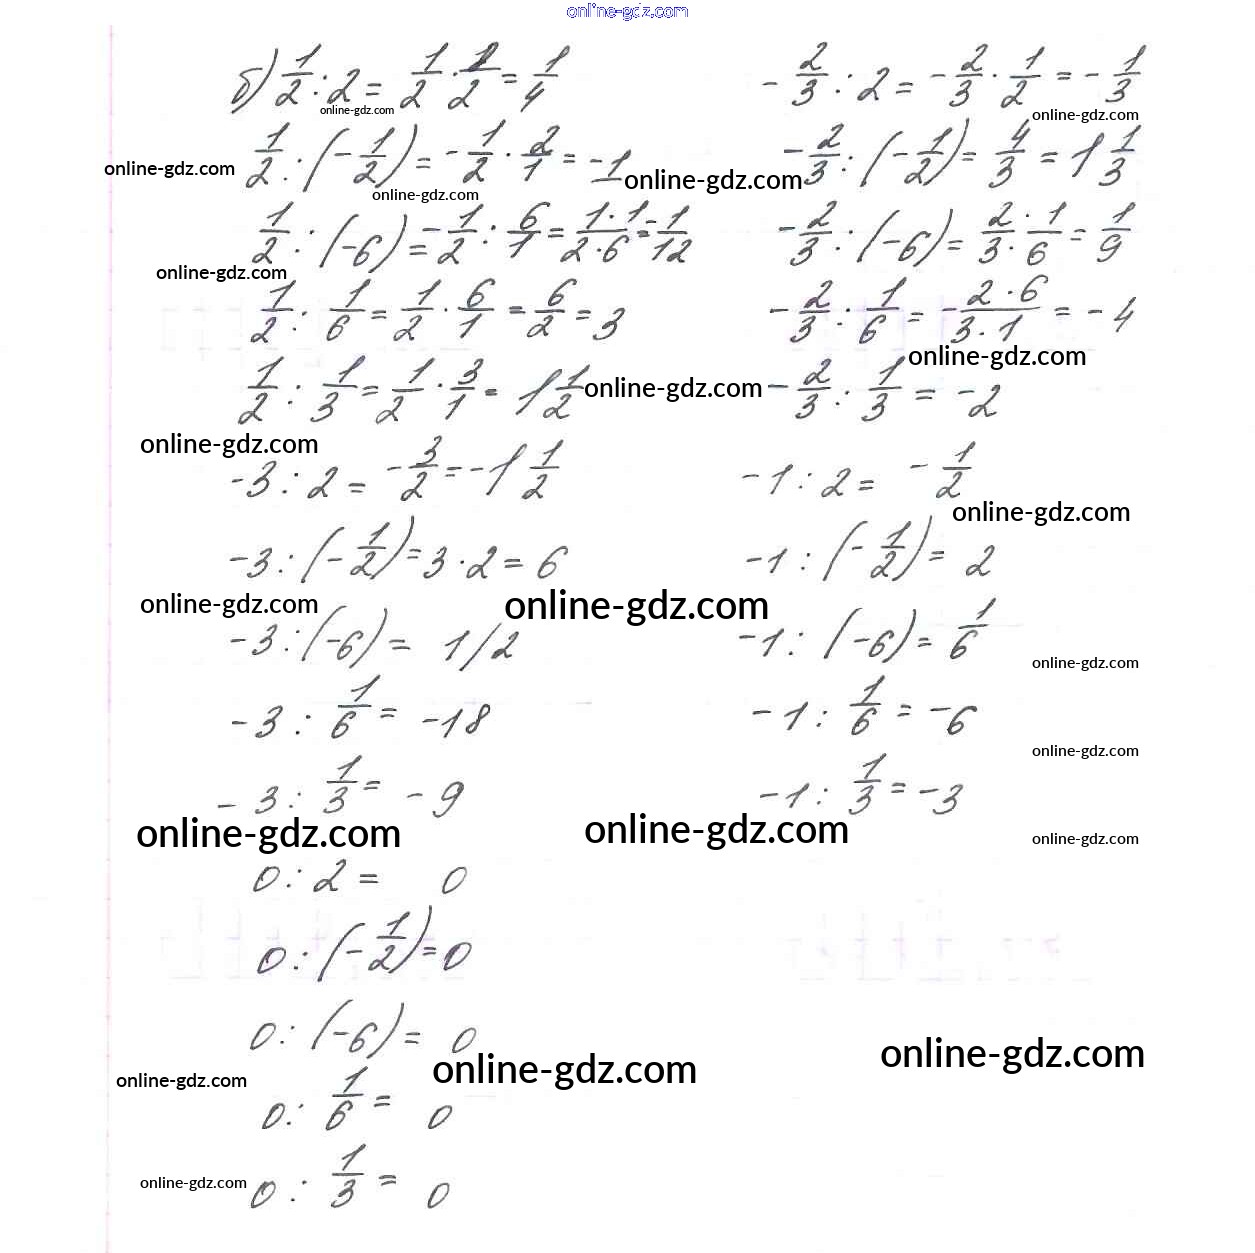 online-gdz.com
б) 1/2 : 2 = 1/2 · 1/2 = 1/4
- 2/3 : 2 = - 2/3 · 1/2 = - 1/3
online-gdz.com
online-gdz.com
1/2 : (- 1/2) = - 1/2 · 2/1 = -1
- 2/3 : (- 1/2) = 4/3 = 1 1/3
online-gdz.com
online-gdz.com
online-gdz.com
1/2 : (-6) = - 1/2 : 6/1 = 1·1/2·6 = - 1/12
- 2/3 : (-6) = 2·1/3·6 = 1/9
online-gdz.com
1/2 : 1/6 = 1/2 · 6/1 = 6/2 = 3
- 2/3 : 1/6 = - 2·6/3·1 = - 4
online-gdz.com
1/2 : 1/3 = 1/2 · 3/1 = 1 1/2
online-gdz.com
- 2/3 : 1/3 = -2
online-gdz.com
-3 : 2 = - 3/2 = -1 1/2
-1 : 2 = - 1/2
online-gdz.com
-3 : (- 1/2) = 3 · 2 = 6
-1 : (- 1/2) = 2
online-gdz.com
online-gdz.com
-3 : (-6) = 1/2
-1 : (-6) = 1/6
online-gdz.com
-3 : 1/6 = -18
-1 : 1/6 = -6
online-gdz.com
-3 : 1/3 = -9
-1 : 1/3 = -3
online-gdz.com
online-gdz.com
online-gdz.com
0 : 2 = 0
0 : (- 1/2) = 0
0 : (-6) = 0
online-gdz.com
online-gdz.com
online-gdz.com
0 : 1/6 = 0
0 : 1/3 = 0
online-gdz.com